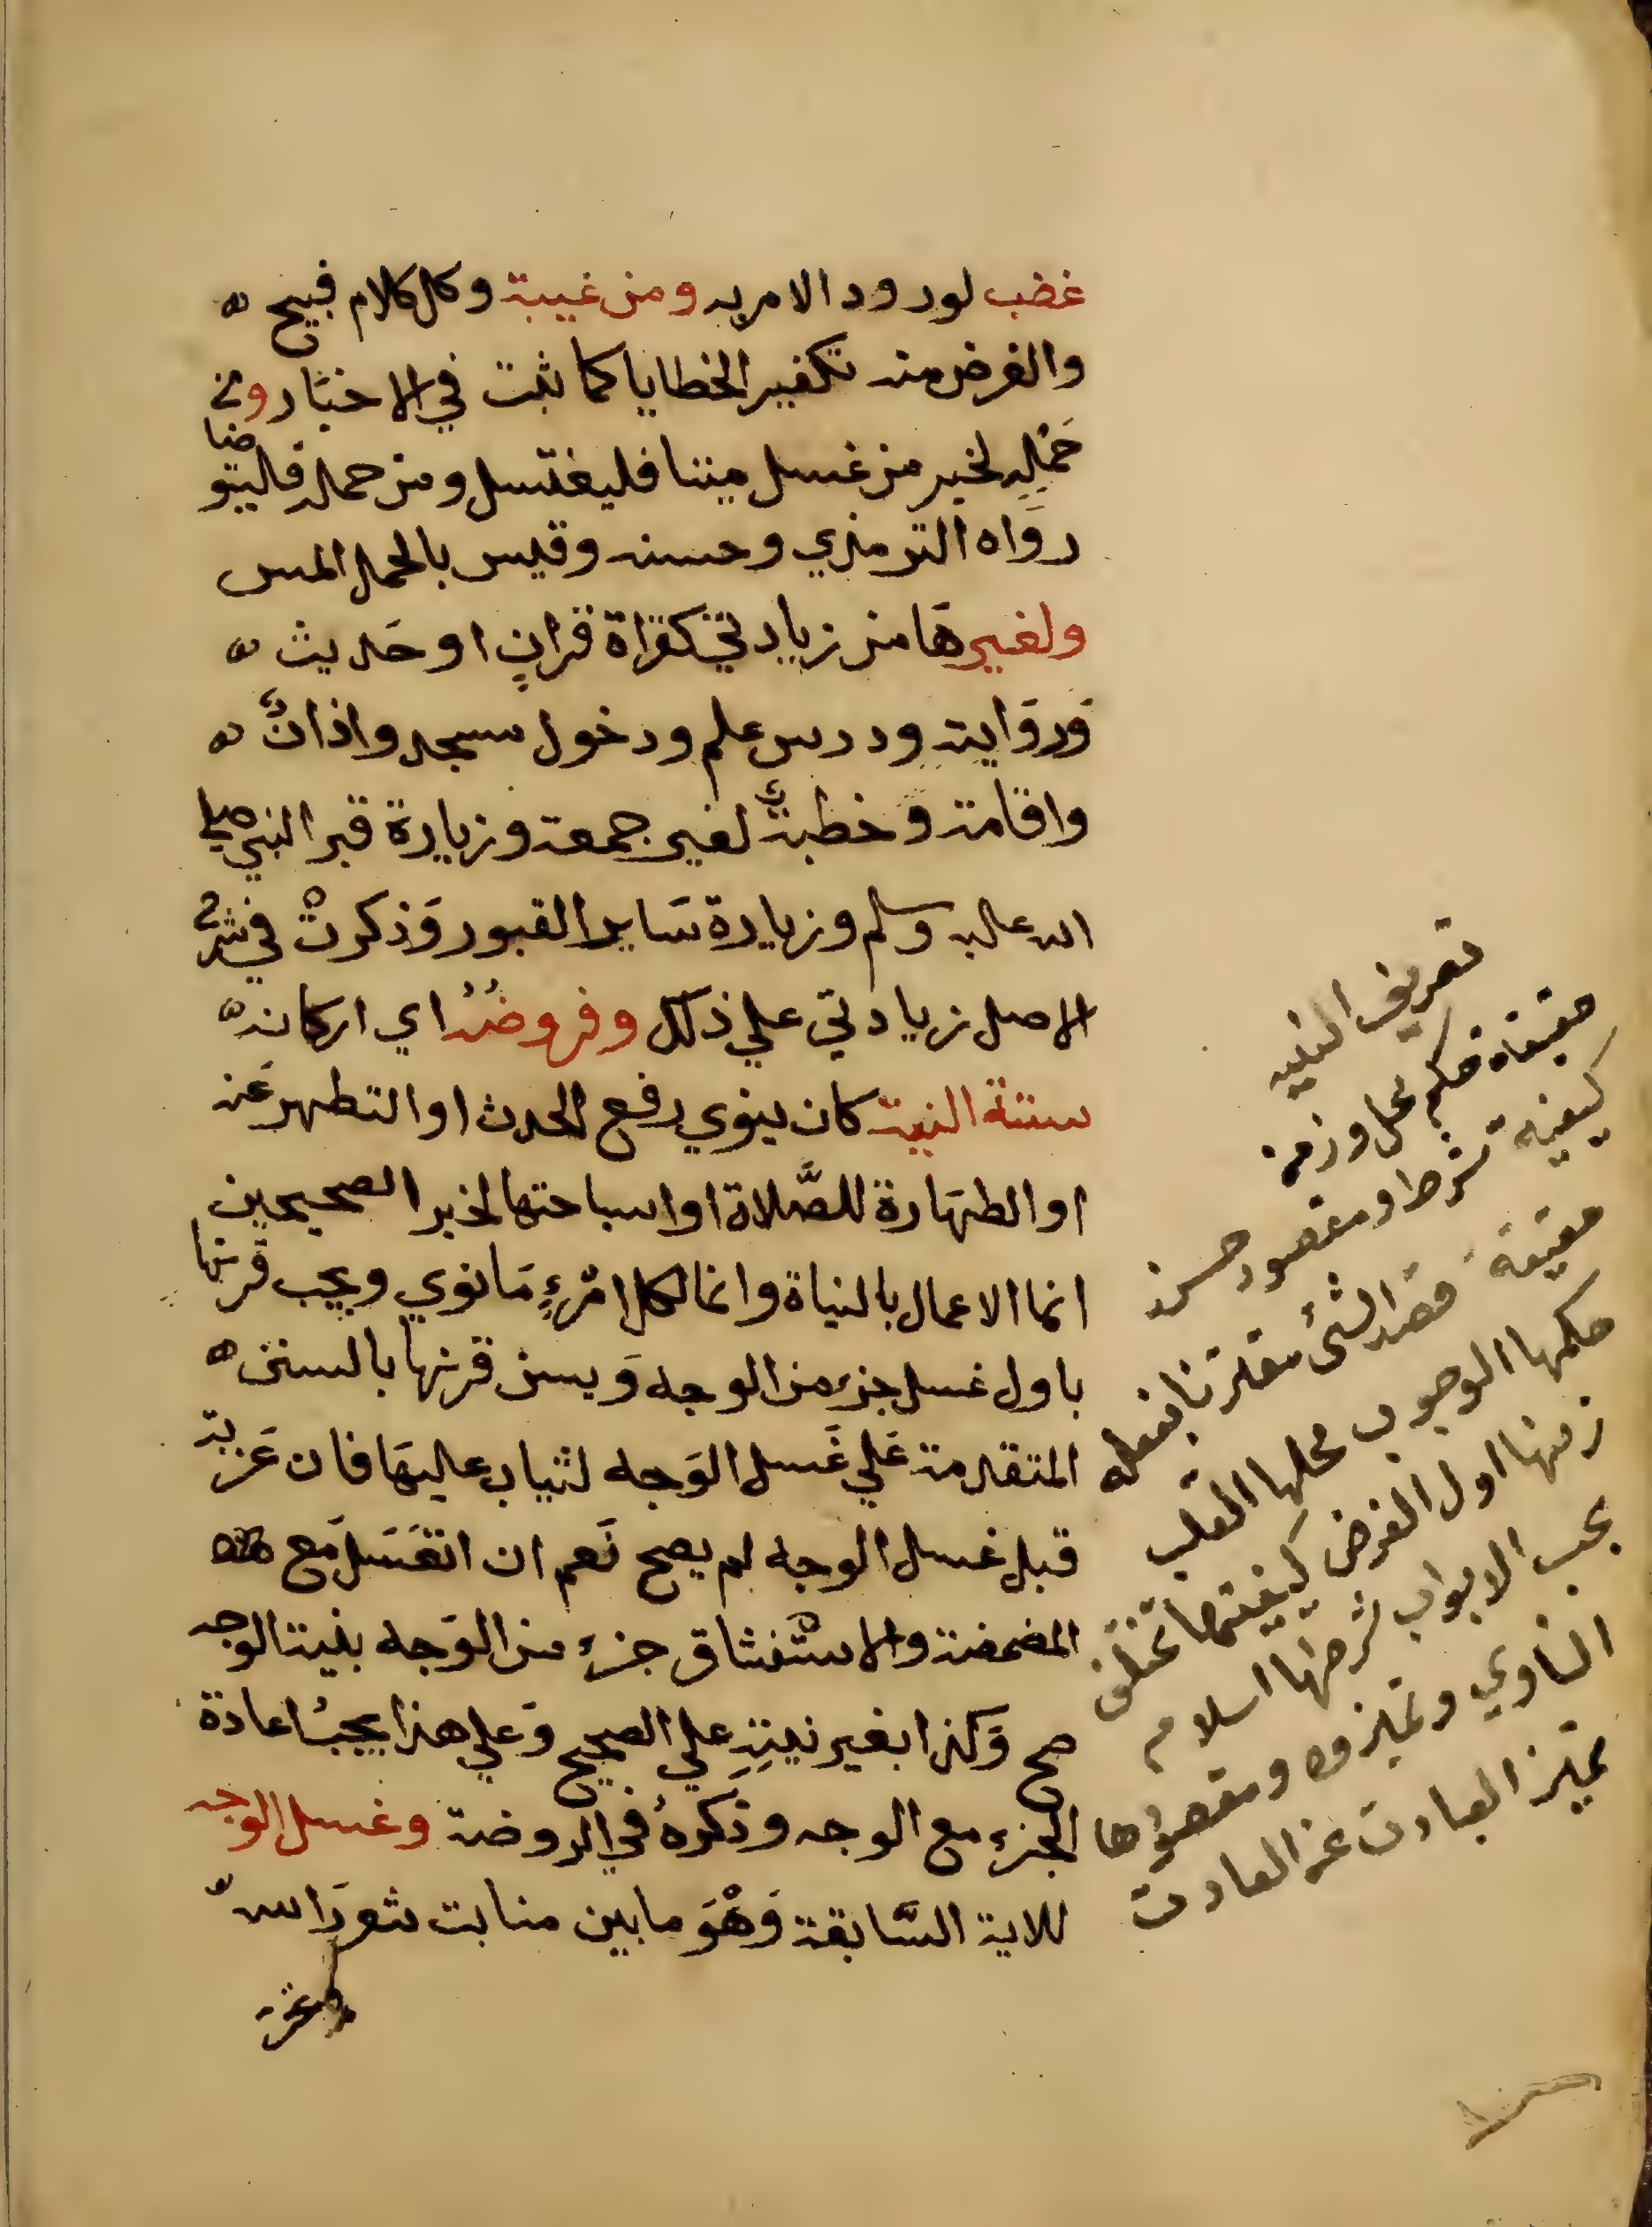 غضب لورود الامر به ومن غيبة وكل كلام قبيح
والغرض منه تكفير الخطايا كما ثبت في الاخبار ومن
حَمْلِهِ لخبر من غسل ميتا فليغتسل ومن حمله فليتوضا
رواه الترمذي وحسنه وقيس بالحمل المس
ولغيرها من زيادتي كقراة قران او حديث
وروايته ودرس علم ودخول مسجد واذان
واقامة وخطبة لغير جمعة وزيارة قبر النبي صلى
الله عليه وسلم وزيارة ساير القبور وذكرت في شرح
الاصل زيادتي علي ذلك وفروضُهُ اي اركانه
ستتة النية كان ينوي رفع الحدث او التطهر عنه
او الطهارة للصَّلاة او استباحتها لخبر الصحيحين
انما الاعمال بالنياة وانما لكل امْرِءٍ مَا نوي ويجب قرنها
باول غسل جزء من الوجه وَيسن قرنها بالسنن
المتقدمة عَلي غَسل الوَجه لثياب عليهَا فان عَزبت
قبل غسل الوجه لم يصح نَعم ان انغَسَل مَع
المضمضة والاستنشاق جزء من الوَجه بنية الوجه
صح وَكذا بغير نيتهِ علي الصحيح وَعلي هذا يجبُ اعادة
الجزء مع الوجه وذكرهُ في الروضة وغسل الوجه
للاية السَّابقة وَهْوَ ما بين منابت شعر رَاسه
وعن
تعريف النيه
حقيقة حكم محل وزمن
كيفية شرط ومقصود حسن
حقيقة قصد الشئ مقترنا بفعله
حكمها الوجوب محلها القلب
زمنها اول الفرض كيفيتها تختلف
بحسب الابواب شرطها اسلام
الناوي وتميزه ومقصودها
تميز العبادت عن العادت